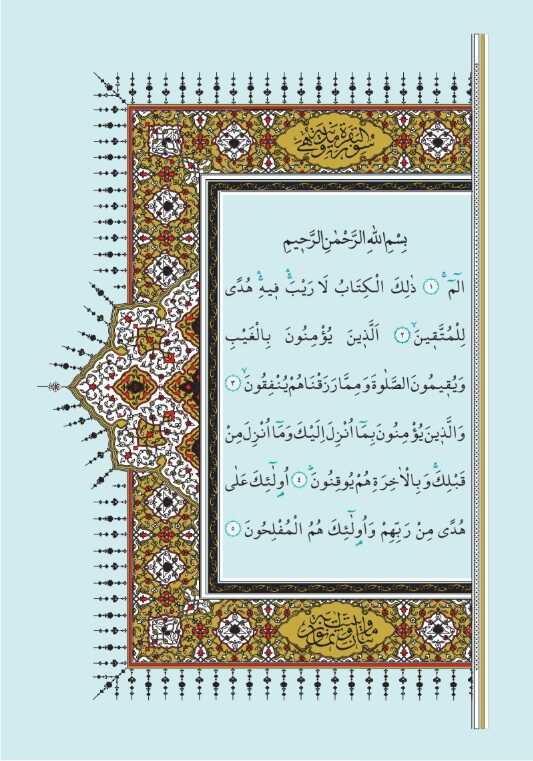 بِسْمِ اللهِ الرَّحْمٰنِ الرَّحٖيمِ
الٓمٓۚ ﴿١﴾ ذٰلِكَ الْكِتَابُ لَا رَيْبَۚۛ فٖيهِۚۛ هُدًى
لِلْمُتَّقٖينَۙ ﴿٢﴾ اَلَّذٖينَ يُؤْمِنُونَ بِالْغَيْبِ
وَيُقٖيمُونَ الصَّلٰوةَ وَمِمَّا رَزَقْنَاهُمْ يُنْفِقُونَۙ ﴿٣﴾
وَالَّذٖينَ يُؤْمِنُونَ بِمَٓا اُنْزِلَ اِلَيْكَ وَمَٓا اُنْزِلَ مِنْ
قَبْلِكَۚ وَبِالْاٰخِرَةِ هُمْ يُوقِنُونَۜ ﴿٤﴾ اُو۬لٰٓئِكَ عَلٰى
هُدًى مِنْ رَبِّهِمْ وَاُو۬لٰٓئِكَ هُمُ الْمُفْلِحُونَ ﴿٥﴾